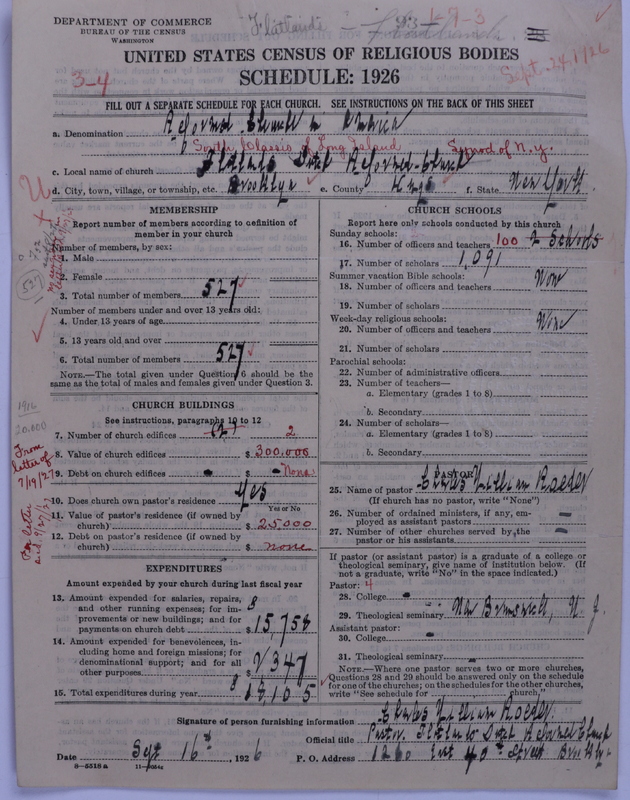 DEPARTMENT OF COMMERCE
BUREAU OF THE CENSUS
WASHINGTON
Flatlands
3-4
Sept. 24, 1926
UNITED STATES CENSUS OF RELIGIOUS BODIES
SCHEDULE: 1926
FILL OUT A SEPARATE SCHEDULE FOR EACH CHURCH. SEE INSTRUCTIONS ON THE BACK OF THIS SHEET
a. Denomination Reformed Church in America
South Classis of Long Island Synod of N.Y.
c. Local name of church Flatlands Dutch Reformed Church
d. City, town, village, or township, etc. Brooklyn e. County Kings f. State New York
MEMBERSHIP
Report number of members according to definition of
member in your church
Number of members, by sex:
1. Male
2. Female
3. Total number of members 527
Number of members under and over 13 years old:
4. Under 13 years of age
5. 13 years old and over
6. Total number of members 527
NOTE.—The total given under Question 6 should be the
same as the total of males and females given under Question 3.
527
CHURCH BUILDINGS
See instructions, paragraphs 10 to 12
7. Number of church edifices (2) 2
8. Value of church edifices $ 300,000
9. Debt on church edifices $ None
10. Does church own pastor's residence Yes
Yes or No
11. Value of pastor's residence (if owned by
church) $ 25000
12. Debt on pastor's residence (if owned by
church) $ none
1916
20,000
From
letter of
7/19/27
EXPENDITURES
Amount expended by your church during last fiscal year
13. Amount expended for salaries, repairs,
and other running expenses; for im-
provements or new buildings; and for
payments on church debt $ 15,758
14. Amount expended for benevolences, in-
cluding home and foreign missions; for
denominational support; and for all
other purposes $ 2347
15. Total expenditures during year $ 18,105
CHURCH SCHOOLS
Report here only schools conducted by this church
Sunday schools:
16. Number of officers and teachers 100 2 Schools
17. Number of scholars 1,091
Summer vacation Bible schools:
18. Number of officers and teachers None
19. Number of scholars
Week-day religious schools:
20. Number of officers and teachers None
21. Number of scholars
Parochial schools:
22. Number of administrative officers
23. Number of teachers—
a. Elementary (grades 1 to 8)
b. Secondary
24. Number of scholars—
a. Elementary (grades 1 to 8)
b. Secondary
PASTOR
25. Name of pastor Charles William Roeder
(If church has no pastor, write "None")
26. Number of ordained ministers, if any, em-
ployed as assistant pastors —
27. Number of other churches served by the
pastor or his assistants —
If pastor (or assistant pastor) is a graduate of a college or
theological seminary, give name of institution below. (If
not a graduate, write "No" in the space indicated.)
Pastor: 4
28. College
29. Theological seminary New Brunswick, N. J.
Assistant pastor:
30. College
31. Theological seminary
NOTE.—Where one pastor serves two or more churches,
Questions 28 and 29 should be answered only on the schedule
for one of the churches; on the schedules for the other churches,
write "See schedule for church."
Signature of person furnishing information Charles William Roeder
Official title Pastor Flatlands Dutch Reformed Church
Date Sept 16th, 1926 P. O. Address 1260 East 40th Street Brooklyn
8-5518a